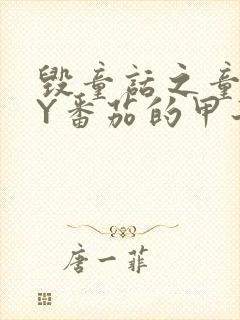 毁童话之童
Y番茄的甲
唐一菲